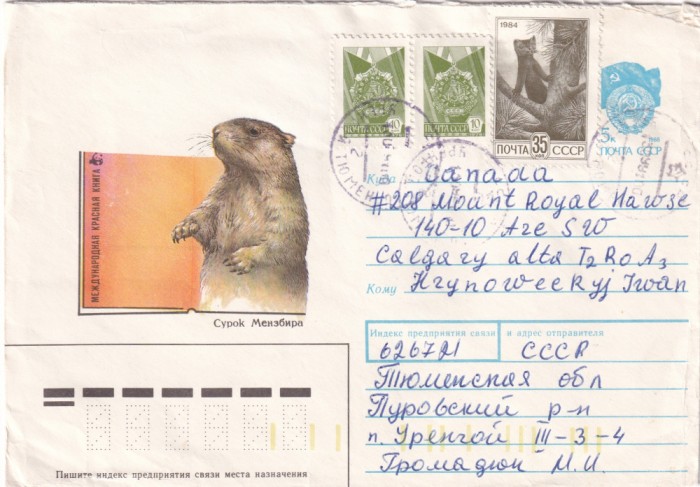 МЕЖДУНАРОДНАЯ КРАСНАЯ КНИГА
Сурок Мензбира
ПОЧТА СССР 10
ПОЧТА СССР 10
1984
ПОЧТА 35 СССР
5к 1988
ПОЧТА СССР
ТЮМЕН
Куда Canada
#208 Mount Royal House
140-10 Ave SW
Calgary alta T2R0A3
Кому Hrynoweckyj Iwan
Индекс предприятия связи и адрес отправителя
626721 СССР
Тюменская обл
Пуровский р-н
п. Уренгой III-3-4
Громадюк М.И.
Пишите индекс предприятия связи места назначения